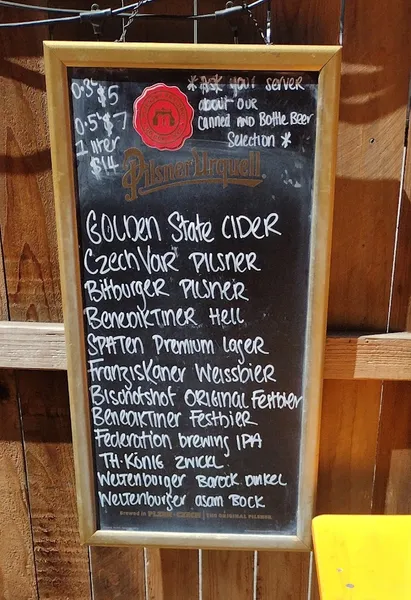 0.3 $5
0.5 $7
1 liter
$14
*Ask your server
about our
canned and Bottle Beer
Selection *
Pilsner Urquell
GOLDEN State CIDER
CzechVar PILSNER
Bitburger PILSNER
Benediktiner Hell
SPATEN Premium Lager
Franziskaner Weissbier
Bischofshof ORIGINAL Festbier
Benediktiner Festbier
Federation brewing IPA
TH. König ZWICKL
Weltenburger Barock Dunkel
Weltenburger asam BOCK
Brewed in PLZEN - CZECH | THE ORIGINAL PILSNER